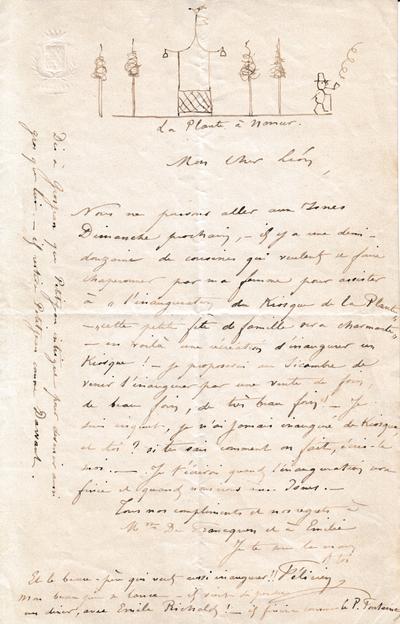 La Plante à Namur.
Mon Cher Léon,
Nous ne pouvons aller aux Isnes
Dimanche prochain, — il y a une demi-
douzaine de cousines qui veulent se faire
chaperonner par ma femme pour assister
à "l'inauguration du Kiosque de la Plante,
— cette petite fête de famille sera charmante"
— en voilà une récréation d'inaugurer un
Kiosque! — Je proposerai au Sicambre de
venir l'inaugurer par une vente de foin,
de beau foin, de très beau foin!! — Je
suis inquiet, je n'ai jamais inauguré de Kiosque,
et toi? si tu sais comment on fait, écris-le
moi. — Je t'écrirai quand l'inauguration sera
finie et quand nous irons aux Isnes. —
Tous nos compliments et nos regrets à
Mme De Francquen et à Emilie
Je te serre la main
à toi
Félicien
Et le beau-père qui veut aussi inaugurer!!
mon beau-père
un dîner, avec Emile Richald! — il finira comme le P. Fontaine
Dis à
gros